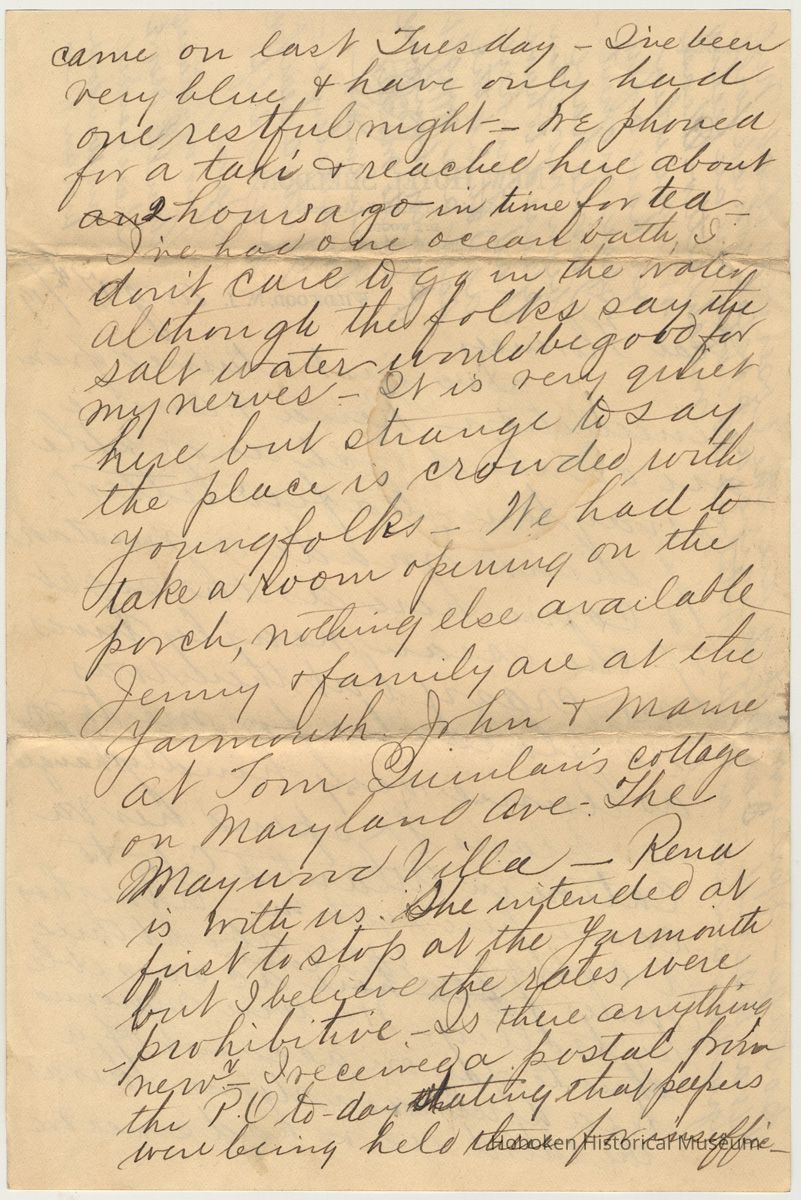 came on last Tuesday – I've been
very blue & have only had
one restful night – We phoned
for a taxi & reached here about
an 2 hours ago in time for tea –
I've had one ocean bath, I
don't care to go in the water
although the folks say the
salt water would be good for
my nerves – It is very quiet
here but strange to say
the place is crowded with
young folks – We had to
take a room opening on the
porch, nothing else available
Jenny & family are at the
Yarmouth. John & Mame
at Tom Quinlan's cottage
on Maryland Ave. The
Maywood Villa – Rena
is with us. She intended at
first to stop at the Yarmouth
but I believe the rates were
prohibitive – Is there anything
new? – I received a postal from
the P.O to-day stating that papers
were being held there for insuffic–
Hoboken Historical Museum